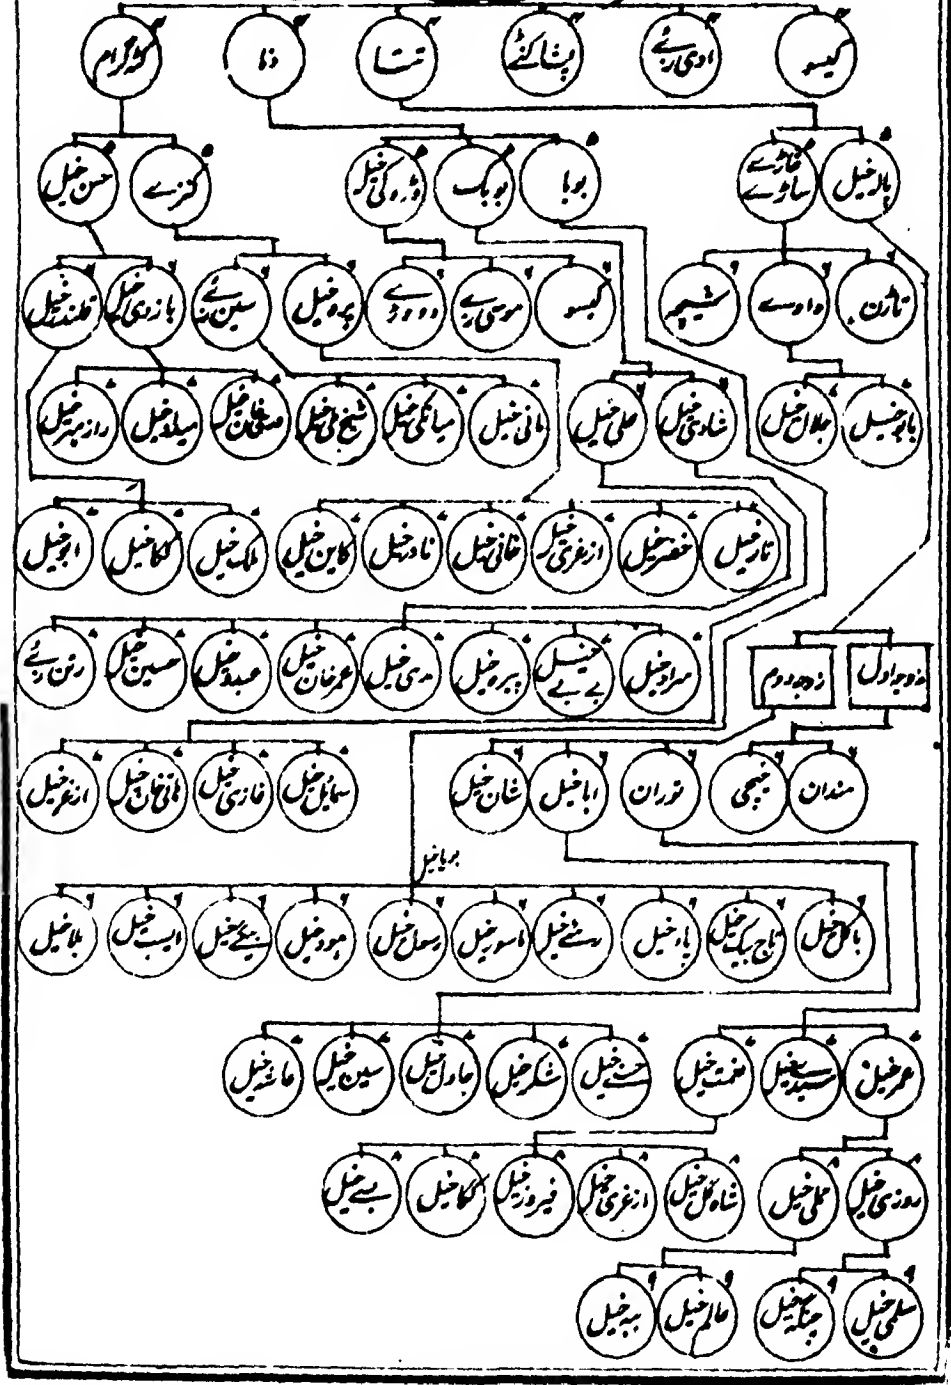 کیسو ادی زئے پشاکنڑے تتسا دنا کٹہ گرام
پالہ خیل خاڑے ساڑے بوبا بوبک وڑوکی خیل کنزے حسن خیل
تاژن دادسے شیخہ کیسو موسی زے دووڑے پرہ خیل سین زئے بازدی خیل قلندر خیل
بابو خیل جلال خیل شادی خیل علی خیل مانی خیل میانگی خیل شیخ علی خیل صدخان خیل میلاد خیل رازمیر خیل
تار خیل خضر خیل ازغری خیل خانی خیل نادر خیل کاین خیل ملک خیل کھکا خیل ابو خیل
مراد خیل بےبے خیل پیرو خیل مدی خیل عمر خان خیل عبدو خیل حسین خیل رتن زئے
زوجہ اول زوجہ دوم
مندان خیچی توران ابا خیل شان خیل سمائل خیل غازی خیل ماتی خان خیل ازغر خیل
بریا خیل
باگل خیل تاج بیگ خیل پاد خیل رسنے خیل ماسور خیل رسول خیل ہود خیل بیگے خیل ایسب خیل بلا خیل
عمر خیل سیدے خیل نعمت خیل حسنے خیل شکر خیل جادل خیل سین خیل عاشہ خیل
روزی خیل مملی خیل شاہ گل خیل ازغری خیل فیروز خیل کھکا خیل بسے خیل
سلمی خیل چنگے خیل عالم خیل ببہ خیل